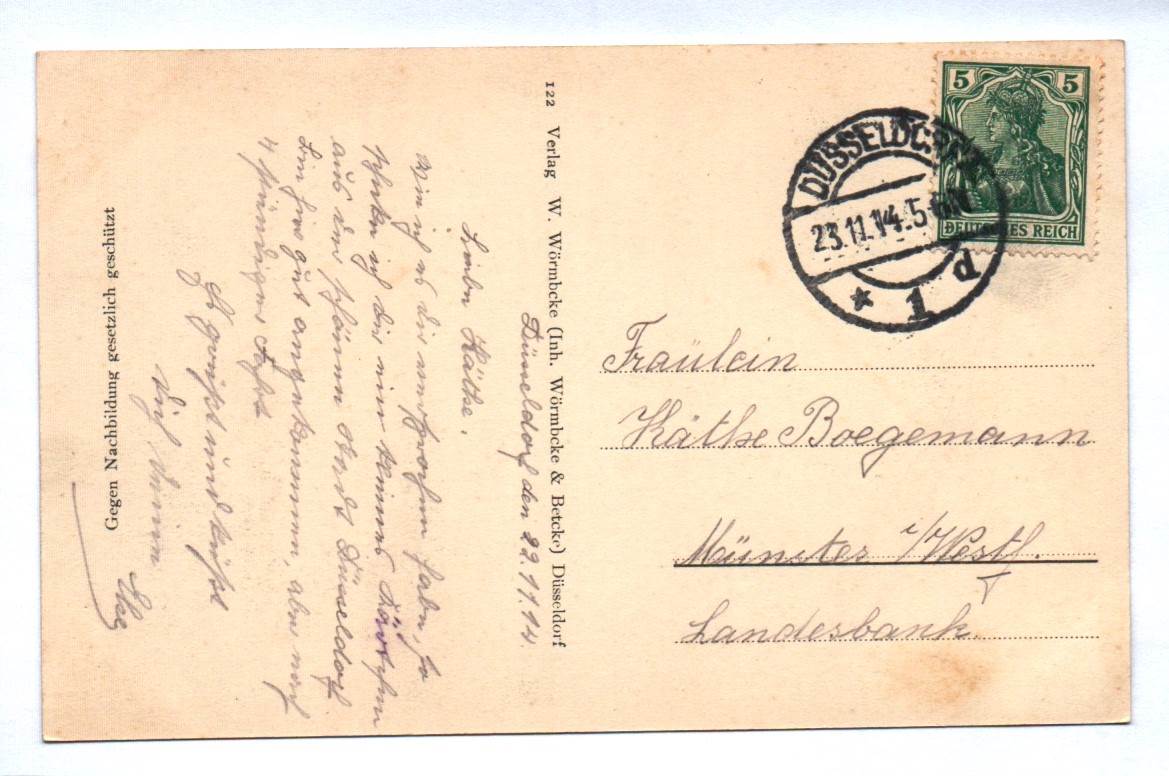 5 5
DEUTSCHES REICH
DÜSSELDORF
23.11.14.5-6N
* 1 p
Fräulein
Käthe Boegemann
Münster i/Westf.
Landesbank.
122 Verlag W. Wörmbcke (Inh. Wörmbcke & Betcke) Düsseldorf
Düsseldorf den 22.11.14.
Liebe Käthe.
Wie ich es dir versprochen habe, so
schicke ich dir nun dieses Kärtchen
aus der schönen Stadt Düsseldorf
Bin hier gut angekommen, aber nach
4 stündiger Fahrt
Es grüßt und küßt
dich deine
Else
Gegen Nachbildung gesetzlich geschützt